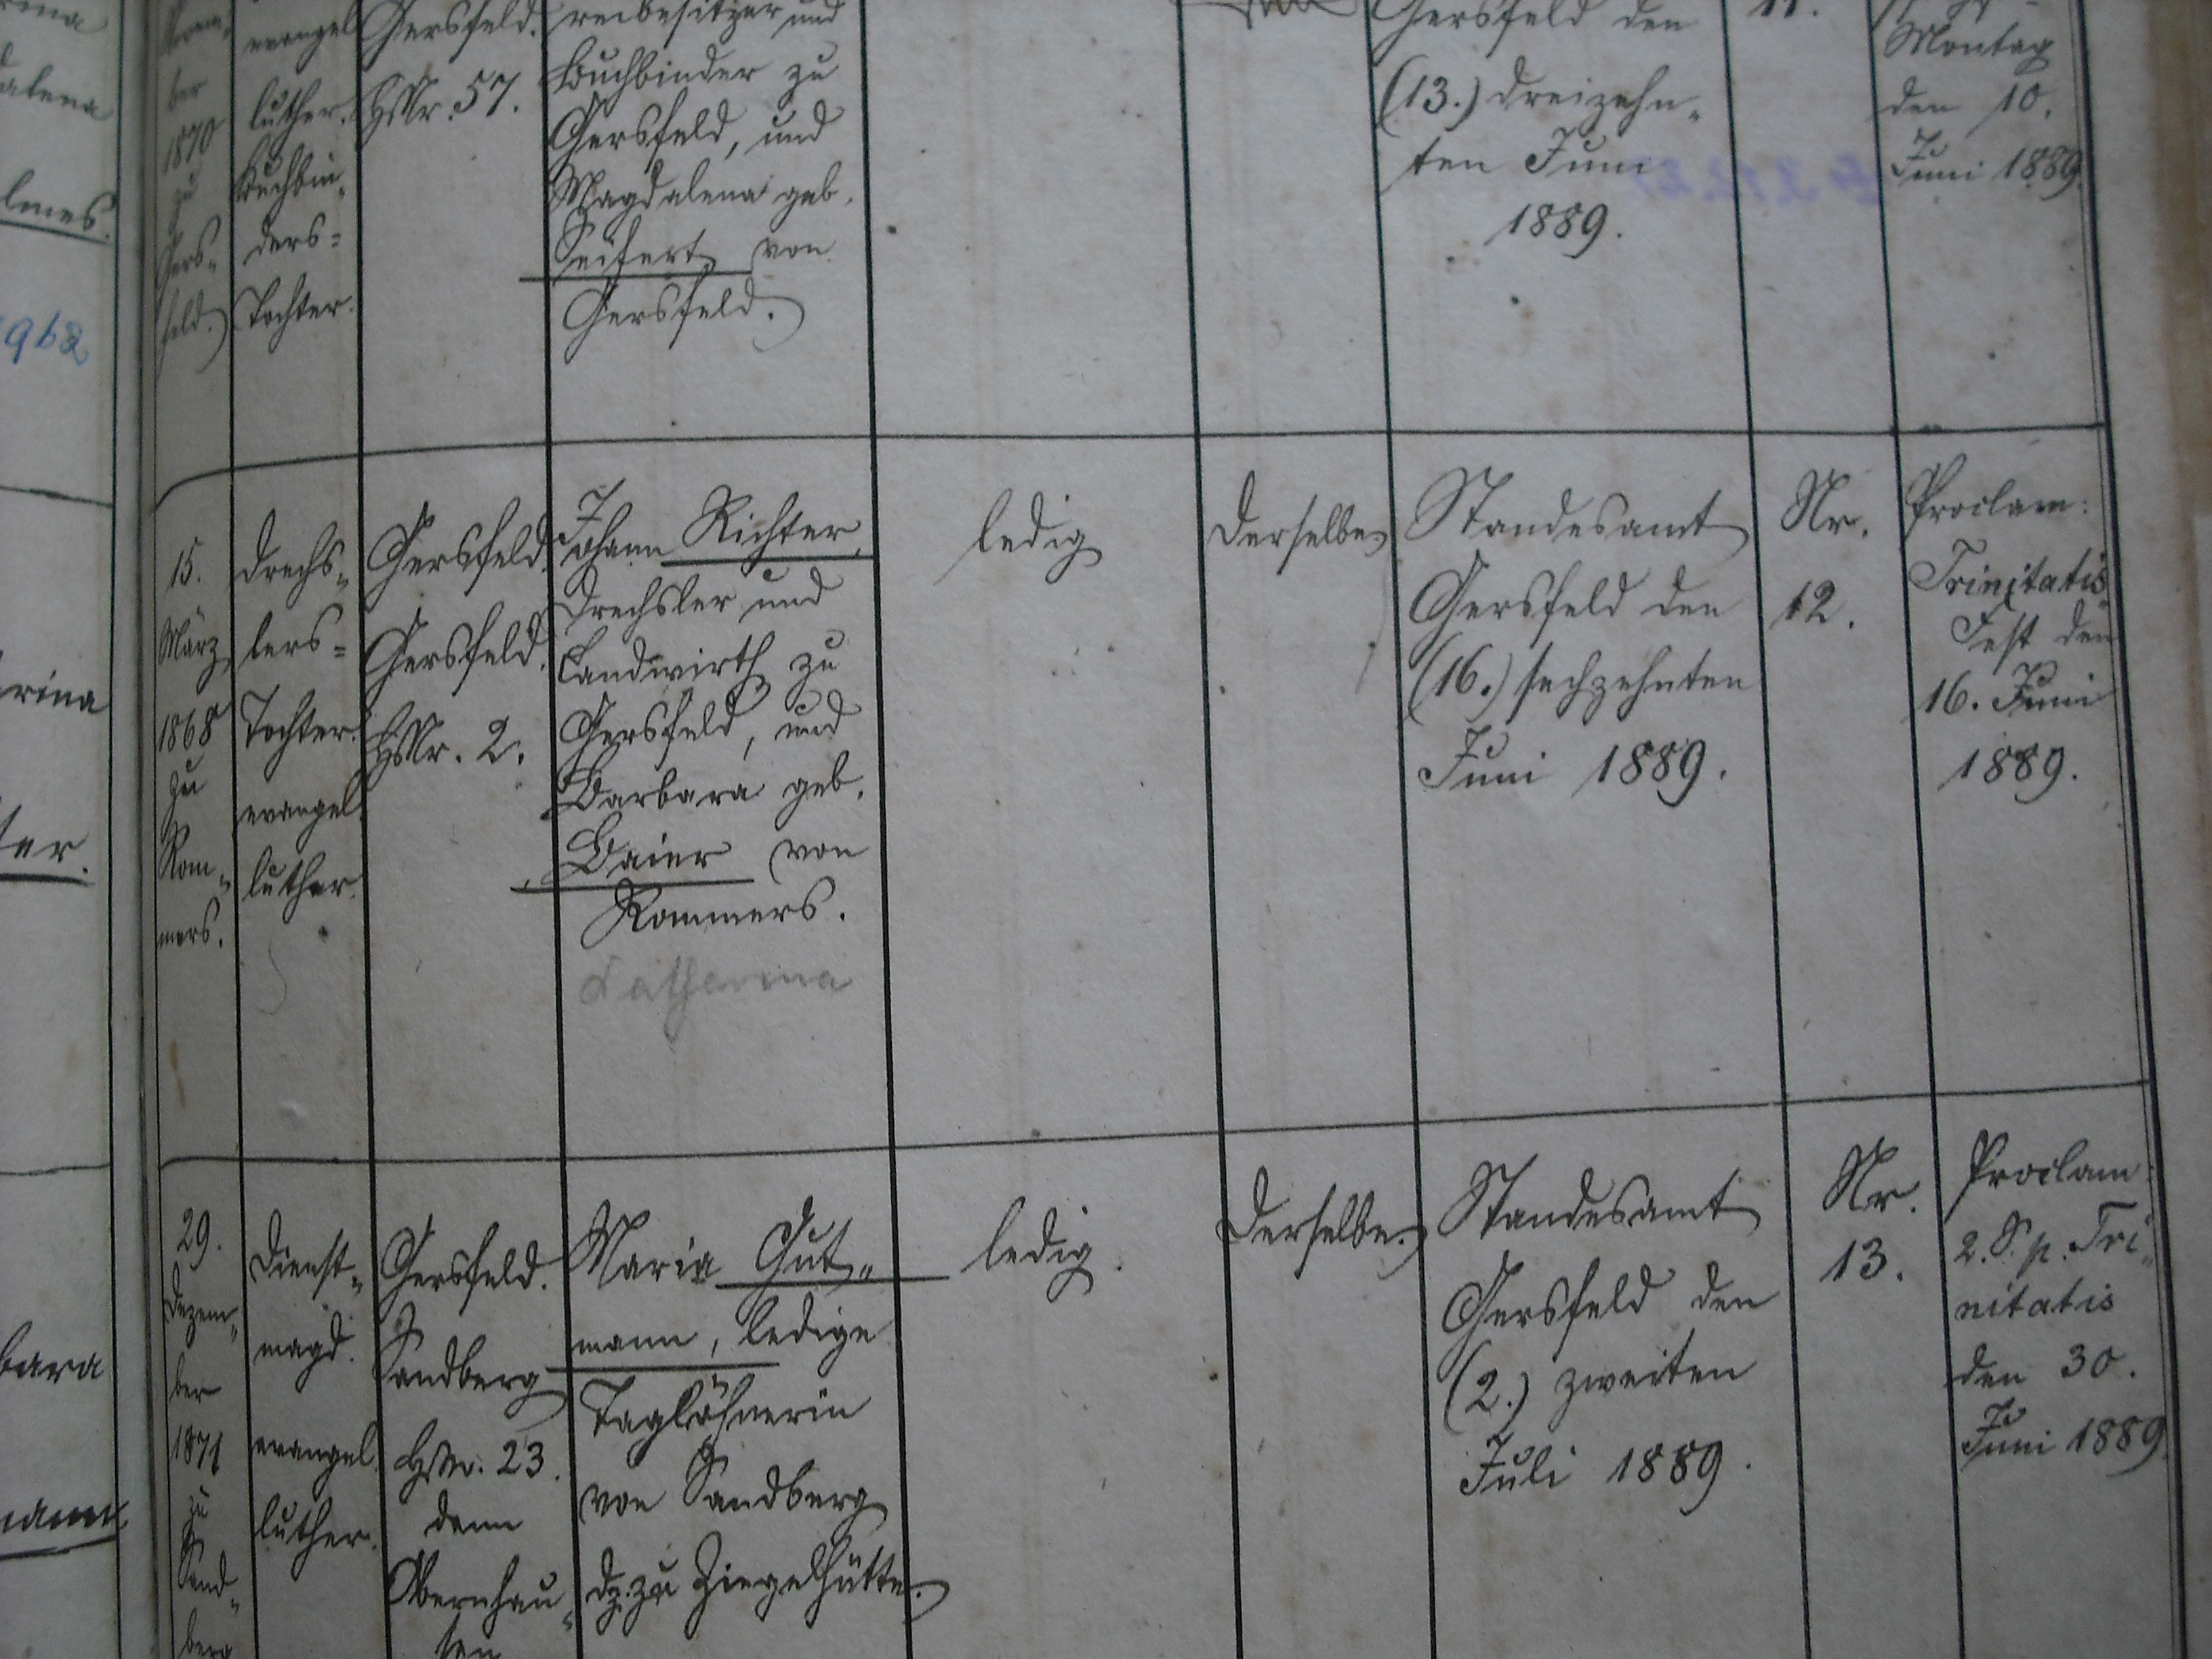 ber
1870
zu
Gers-
feld.
evangel.
luther.
Buchbin-
ders-
Tochter.
Gersfeld.
HsNr. 57.
reibesitzer und
Buchbinder zu
Gersfeld, und
Magdalena geb.
Seifert von
Gersfeld.
Gersfeld den
(13.) dreizehn-
ten Juni
1889.
11.
Montag
den 10.
Juni 1889.
alena
lmes.
962
15.
März
1868
zu
Rom-
mers.
Drechs-
lers-
Tochter.
evangel.
luther.
Gersfeld.
Gersfeld.
HsNr. 2.
Johann Richter,
Drechsler und
Landwirth zu
Gersfeld, und
Barbara geb.
Baier von
Rommers.
Katharina
ledig
Derselbe.
Standesamt
Gersfeld den
(16.) sechzehnten
Juni 1889.
Nr.
12.
Proclam:
Trinitatis-
Fest den
16. Juni
1889.
rina
ter.
29.
Dezem-
ber
1871
zu
Sand-
berg
Dienst-
magd.
evangel.
luther.
Gersfeld.
Sandberg
HsNr. 23.
dann
Obernhau-
sen
Maria Gut-
mann, ledige
Taglöhnerin
von Sandberg
dz. zu Ziegelhütte.
ledig.
Derselbe.
Standesamt
Gersfeld den
(2.) zweiten
Juli 1889.
Nr.
13.
Proclam:
2. S. p. Tri-
nitatis
den 30.
Juni 1889.
bara
mann